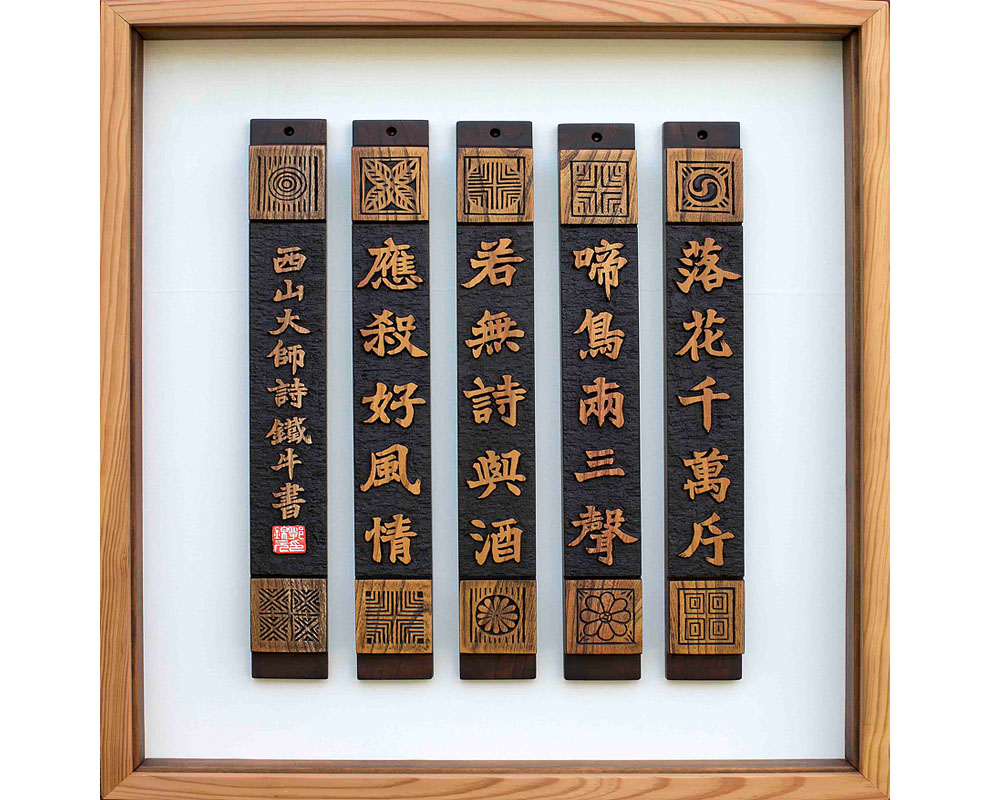 落花千萬斤
啼鳥兩三聲
若無詩與酒
應殺好風情
西山大師詩鐵牛書